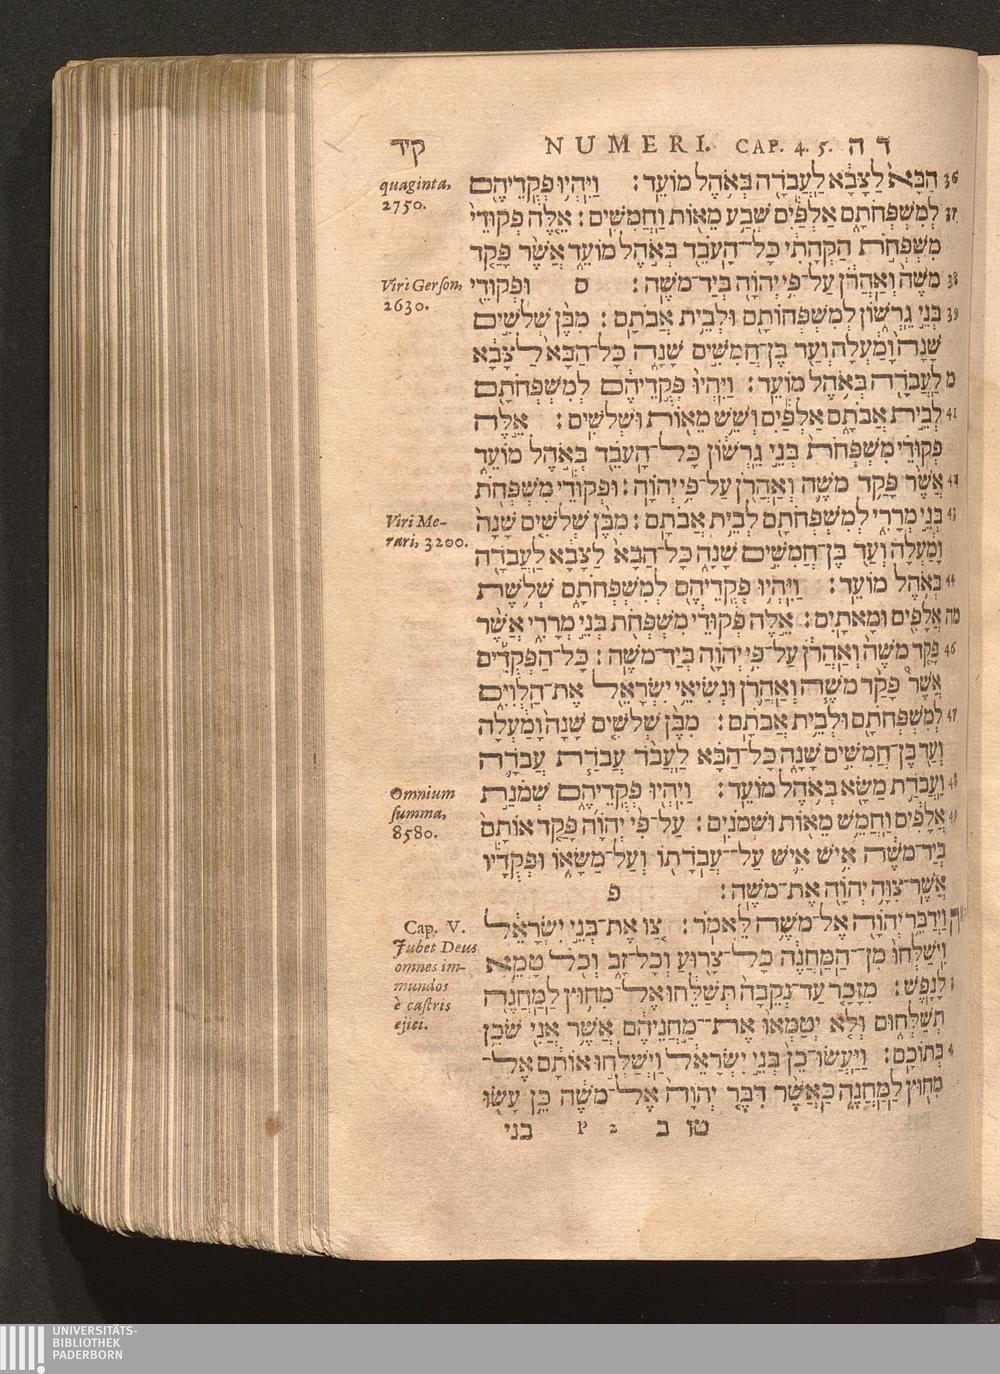 קיד NUMERI. CAP. 4. 5. ד ה
quaginta,
2750.
36 הַבָּא לַצָּבָא לַעֲבֹדָה בְּאֹהֶל מוֹעֵד׃ וַיִּהְיוּ פְקֻדֵיהֶם
37 לְמִשְׁפְּחֹתָם אַלְפַּיִם שְׁבַע מֵאוֹת וַחֲמִשִּׁים׃ אֵלֶּה פְקוּדֵי
מִשְׁפְּחֹת הַקְּהָתִי כָּל־הָעֹבֵד בְּאֹהֶל מוֹעֵד אֲשֶׁר פָּקַד
Viri Gerson,
2630.
38 מֹשֶׁה וְאַהֲרֹן עַל־פִּי יְהוָה בְּיַד־מֹשֶׁה׃ ס וּפְקוּדֵי
39 בְּנֵי גֵרְשׁוֹן לְמִשְׁפְּחוֹתָם וּלְבֵית אֲבֹתָם׃ מִבֶּן שְׁלֹשִׁים
שָׁנָה וָמַעְלָה וְעַד בֶּן־חֲמִשִּׁים שָׁנָה כָּל־הַבָּא לַצָּבָא
מ לַעֲבֹדָה בְּאֹהֶל מוֹעֵד׃ וַיִּהְיוּ פְּקֻדֵיהֶם לְמִשְׁפְּחֹתָם
41 לְבֵית אֲבֹתָם אַלְפַּיִם וְשֵׁשׁ מֵאוֹת וּשְׁלֹשִׁים׃ אֵלֶּה
פְקוּדֵי מִשְׁפְּחֹת בְּנֵי גֵרְשׁוֹן כָּל־הָעֹבֵד בְּאֹהֶל מוֹעֵד
42 אֲשֶׁר פָּקַד מֹשֶׁה וְאַהֲרֹן עַל־פִּי יְהוָה׃ וּפְקוּדֵי מִשְׁפְּחֹת
Viri Me-
rari, 3200.
43 בְּנֵי מְרָרִי לְמִשְׁפְּחֹתָם לְבֵית אֲבֹתָם׃ מִבֶּן שְׁלֹשִׁים שָׁנָה
וָמַעְלָה וְעַד בֶּן־חֲמִשִּׁים שָׁנָה כָּל־הַבָּא לַצָּבָא לַעֲבֹדָה
44 בְּאֹהֶל מוֹעֵד׃ וַיִּהְיוּ פְקֻדֵיהֶם לְמִשְׁפְּחֹתָם שְׁלֹשֶׁת
מה אֲלָפִים וּמָאתָיִם׃ אֵלֶּה פְקוּדֵי מִשְׁפְּחֹת בְּנֵי מְרָרִי אֲשֶׁר
46 פָּקַד מֹשֶׁה וְאַהֲרֹן עַל־פִּי יְהוָה בְּיַד־מֹשֶׁה׃ כָּל־הַפְּקֻדִים
אֲשֶׁר פָּקַד מֹשֶׁה וְאַהֲרֹן וּנְשִׂיאֵי יִשְׂרָאֵל אֶת־הַלְוִיִּם
47 לְמִשְׁפְּחֹתָם וּלְבֵית אֲבֹתָם׃ מִבֶּן שְׁלֹשִׁים שָׁנָה וָמַעְלָה
וְעַד בֶּן־חֲמִשִּׁים שָׁנָה כָּל־הַבָּא לַעֲבֹד עֲבֹדַת עֲבֹדָה
Omnium
summa,
8580.
48 וַעֲבֹדַת מַשָּׂא בְּאֹהֶל מוֹעֵד׃ וַיִּהְיוּ פְּקֻדֵיהֶם שְׁמֹנַת
49 אֲלָפִים וַחֲמֵשׁ מֵאוֹת וּשְׁמֹנִים׃ עַל־פִּי יְהוָה פָּקַד אוֹתָם
בְּיַד־מֹשֶׁה אִישׁ אִישׁ עַל־עֲבֹדָתוֹ וְעַל־מַשָּׂאוֹ וּפְקֻדָיו
אֲשֶׁר־צִוָּה יְהוָה אֶת־מֹשֶׁה׃ פ
Cap. V.
Jubet Deus
omnes im-
mundos
è castris
ejici.
וַיְדַבֵּר יְהוָה אֶל־מֹשֶׁה לֵּאמֹר׃ צַו אֶת־בְּנֵי יִשְׂרָאֵל
וִישַׁלְּחוּ מִן־הַמַּחֲנֶה כָּל־צָרוּעַ וְכָל־זָב וְכֹל טָמֵא
לָנָפֶשׁ׃ מִזָּכָר עַד־נְקֵבָה תְּשַׁלֵּחוּ אֶל־מִחוּץ לַמַּחֲנֶה
תְּשַׁלְּחוּם וְלֹא יְטַמְּאוּ אֶת־מַחֲנֵיהֶם אֲשֶׁר אֲנִי שֹׁכֵן
4 בְּתוֹכָם׃ וַיַּעֲשׂוּ־כֵן בְּנֵי יִשְׂרָאֵל וַיְשַׁלְּחוּ אוֹתָם אֶל־
מִחוּץ לַמַּחֲנֶה כַּאֲשֶׁר דִּבֶּר יְהוָה אֶל־מֹשֶׁה כֵּן עָשׂוּ
טו ב P 2 בני
UNIVERSITÄTS-
BIBLIOTHEK
PADERBORN